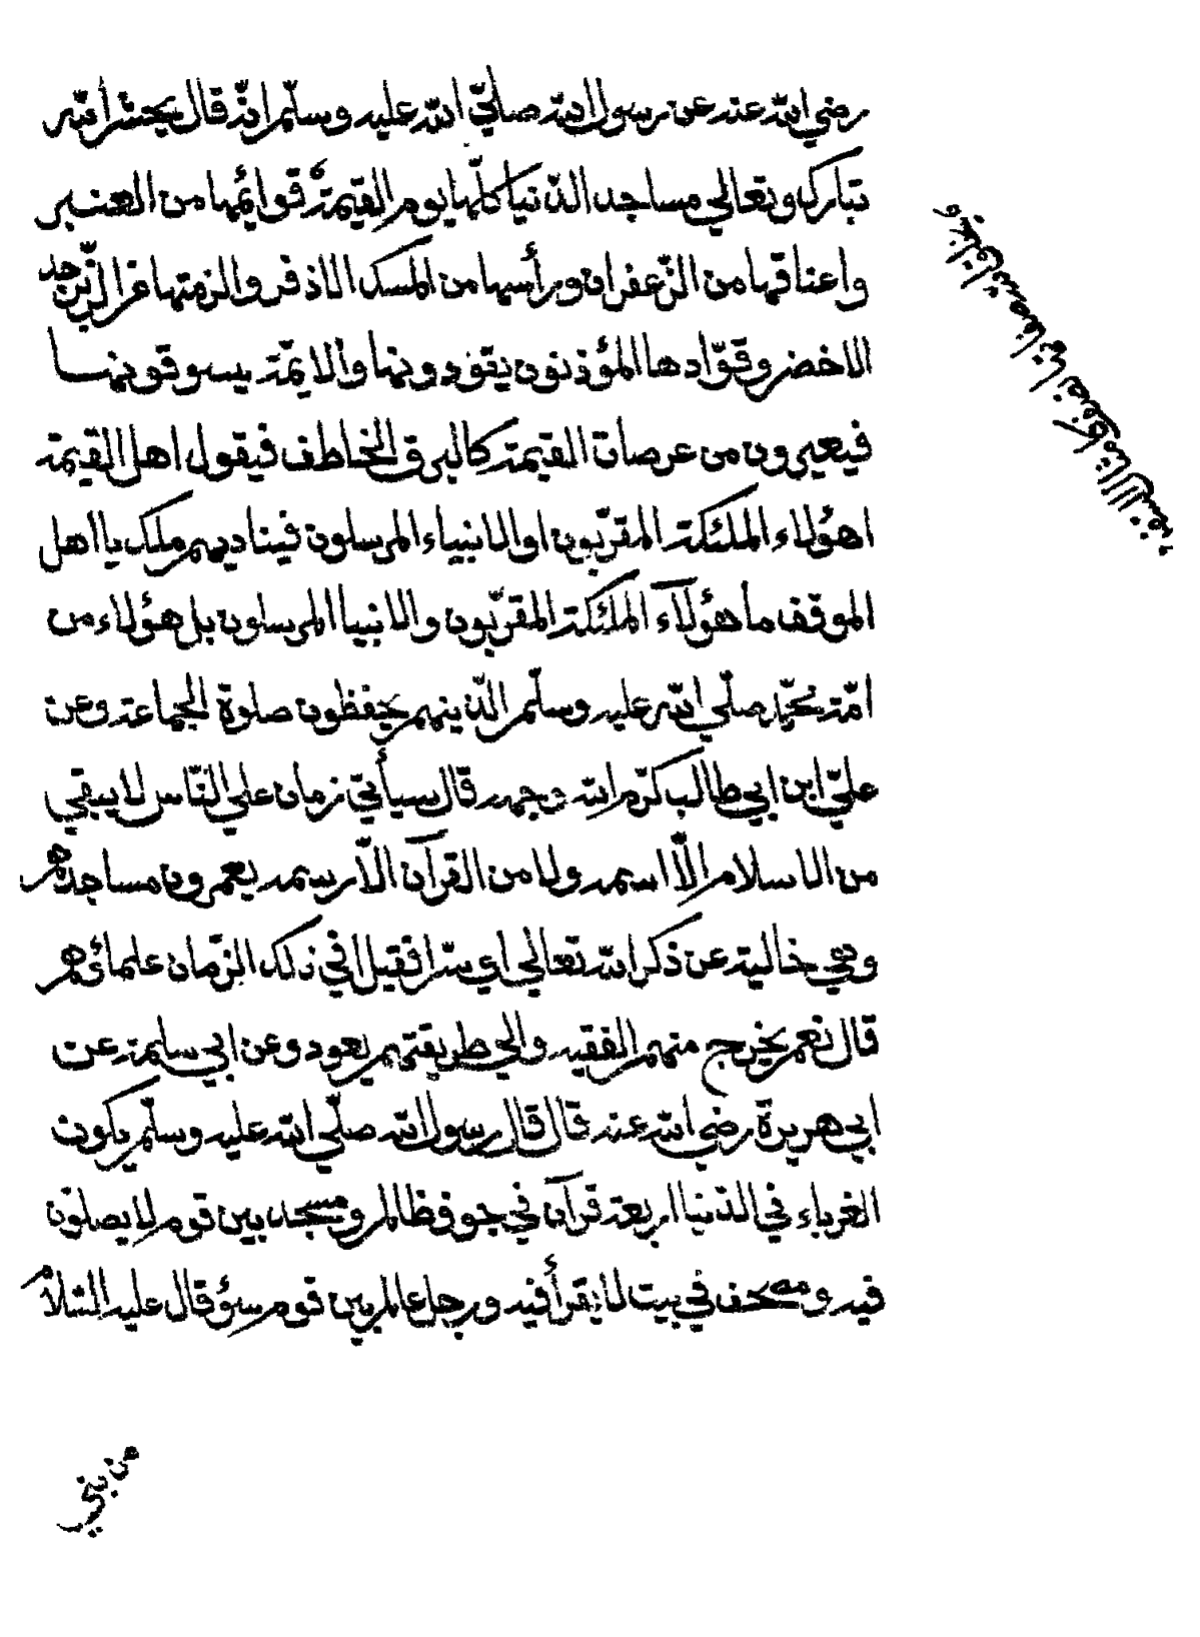 رضي الله عنه عن رسول الله صلّي الله عليه وسلّم انّه قال يحشر الله
تبارك وتعالي مساجد الدّنيا كلّها يوم القيمة قوائمها من العنبر
واعناقها من الزّعفران ورأسها من المسك الاذفر والزمتها من الزّبرجد
الاخضر وقوّادها المؤذنون يقودونها والايمّة يسوقونها
فيعبرون من عرصات القيمة كالبرق الخاطف فيقول اهل القيمة
اهؤلاء الملئكة المقرّبون او الانبياء المرسلون فيناديهم ملك يا اهل
الموقف ما هؤلآء الملئكة المقرّبون والانبيا المرسلون بل هؤلاء من
امّة محمّد صلّي الله عليه وسلّم الّذينهم يحفظون صلوة الجماعة وعن
عليّ ابن ابي طالب كرّم الله وجهه قال سيأتي زمان علي النّاس لا يبقي
من الاسلام الّا اسمه ولا من القرآن الّا رسمه يعمرون مساجدهم
وهي خالية عن ذكر الله تعالي اي شرا فقيل افي ذلك الزّمان علمائهم
قال نعم يخرج منهم الفقيه والي طريقتهم يعود وعن ابي سلمة عن
ابي هريرة رضي الله عنه قال قال رسول الله صلّي الله عليه وسلّم يكون
الغرباء في الدّنيا اربعة قرآن في جوف ظالم ومسجد بين قوم لا يصلّون
فيه ومصحف في بيت لا يقرأ فيه ورجل عالم بين قوم سؤ قال عليه السّلام
من بني